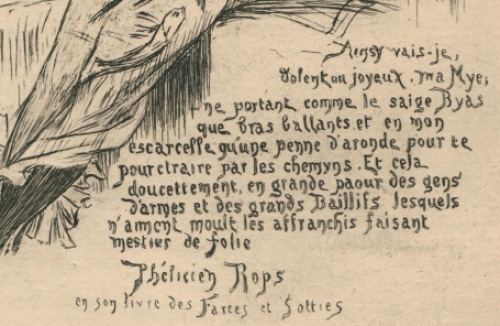 Ainsy vais-je,
dolent ou joyeux, ma Mye,
ne portant comme le saige Byas
que bras ballants et en mon
escarcelle qu'une penne d'aronde pour te
pourctraire par les chemyns. Et cela
doucettement, en grande paour des gens
d'armes et des grands Baillifs lesquels
n'aiment moult les affranchis faisant
mestier de folie
Phélicien Rops
en son livre des Farces et Sotties